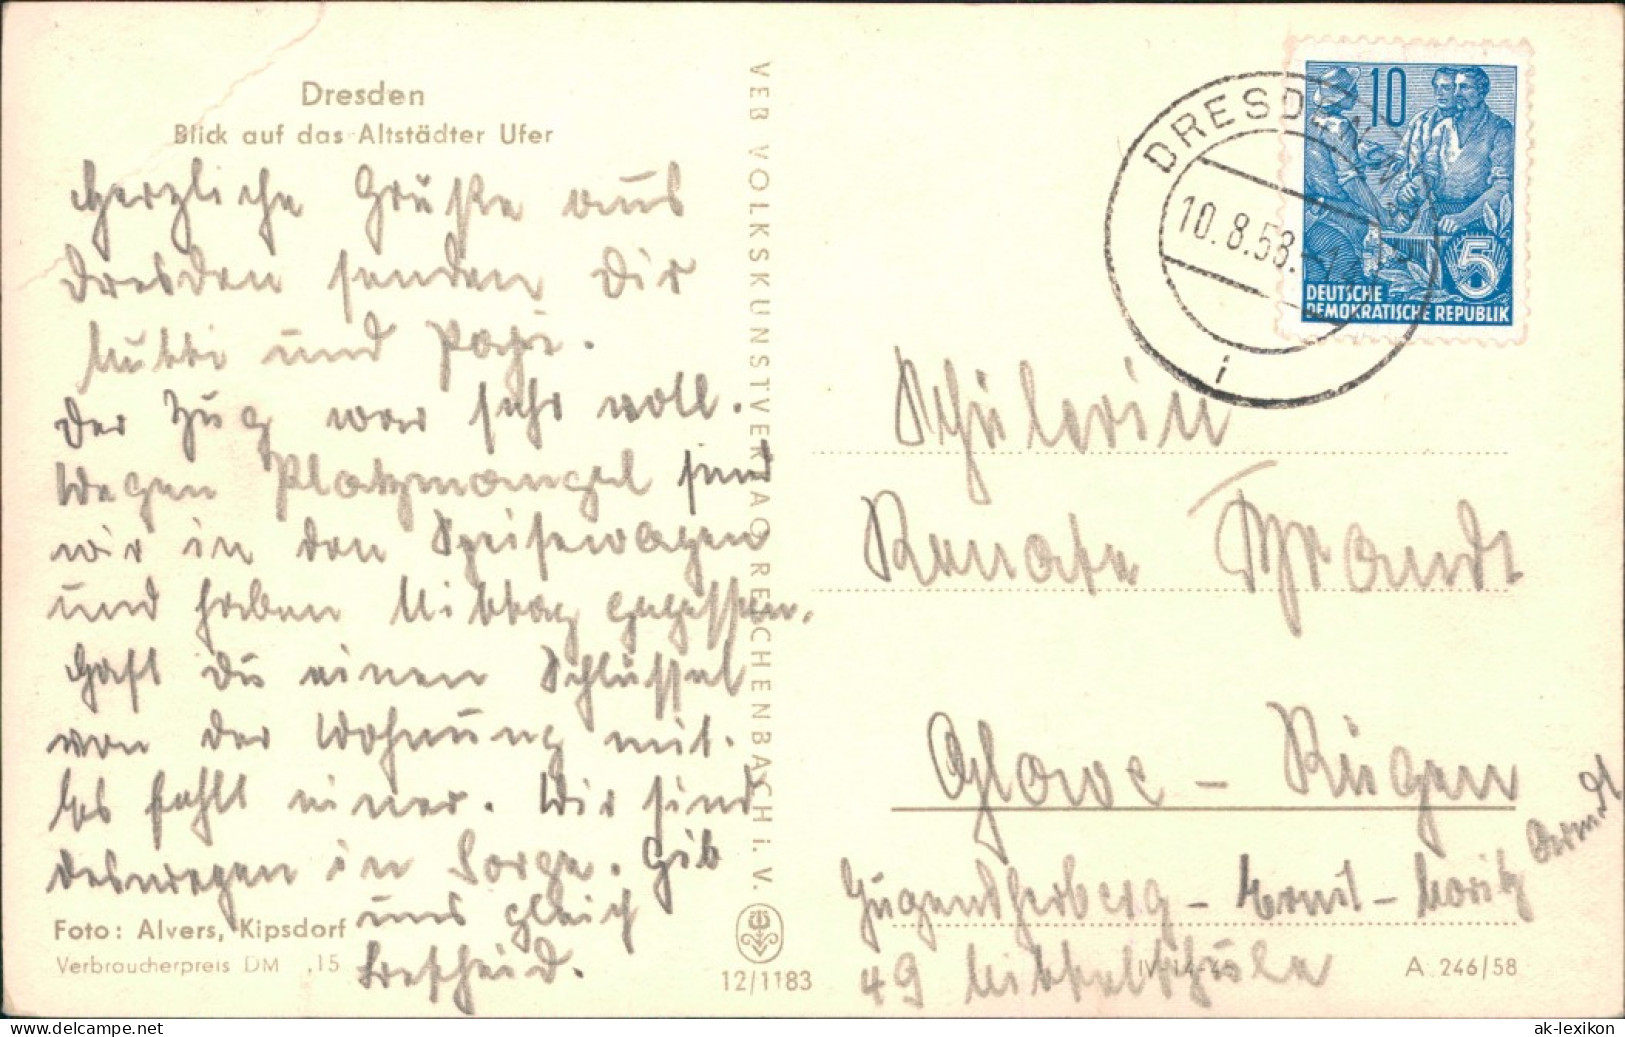 Dresden
Blick auf das Altstädter Ufer
Herzliche Grüße aus
Dresden senden Dir
Mutti und Papi.
Der Zug war sehr voll.
Wegen Platzmangel sind
wir in den Speisewagen
und haben Mittag gegessen.
Hast Du einen Schlüssel
von der Wohnung mit.
Es fehlt einer. Wir sind
deswegen in Sorge. Gib
uns gleich
Bescheid.
Foto: Alvers, Kipsdorf
Verbraucherpreis DM ,15
VEB VOLKSKUNSTVERLAG REICHENBACH i. V.
12/1183
DRESDEN
10.8.58
i
10
5
DEUTSCHE
DEMOKRATISCHE REPUBLIK
Schülerin
Renate
Glowe - Rügen
Jugendherberg - Ernst - Moritz Arndt
49 Mittelschule
A 246/58
delcampe.net
ak-lexikon